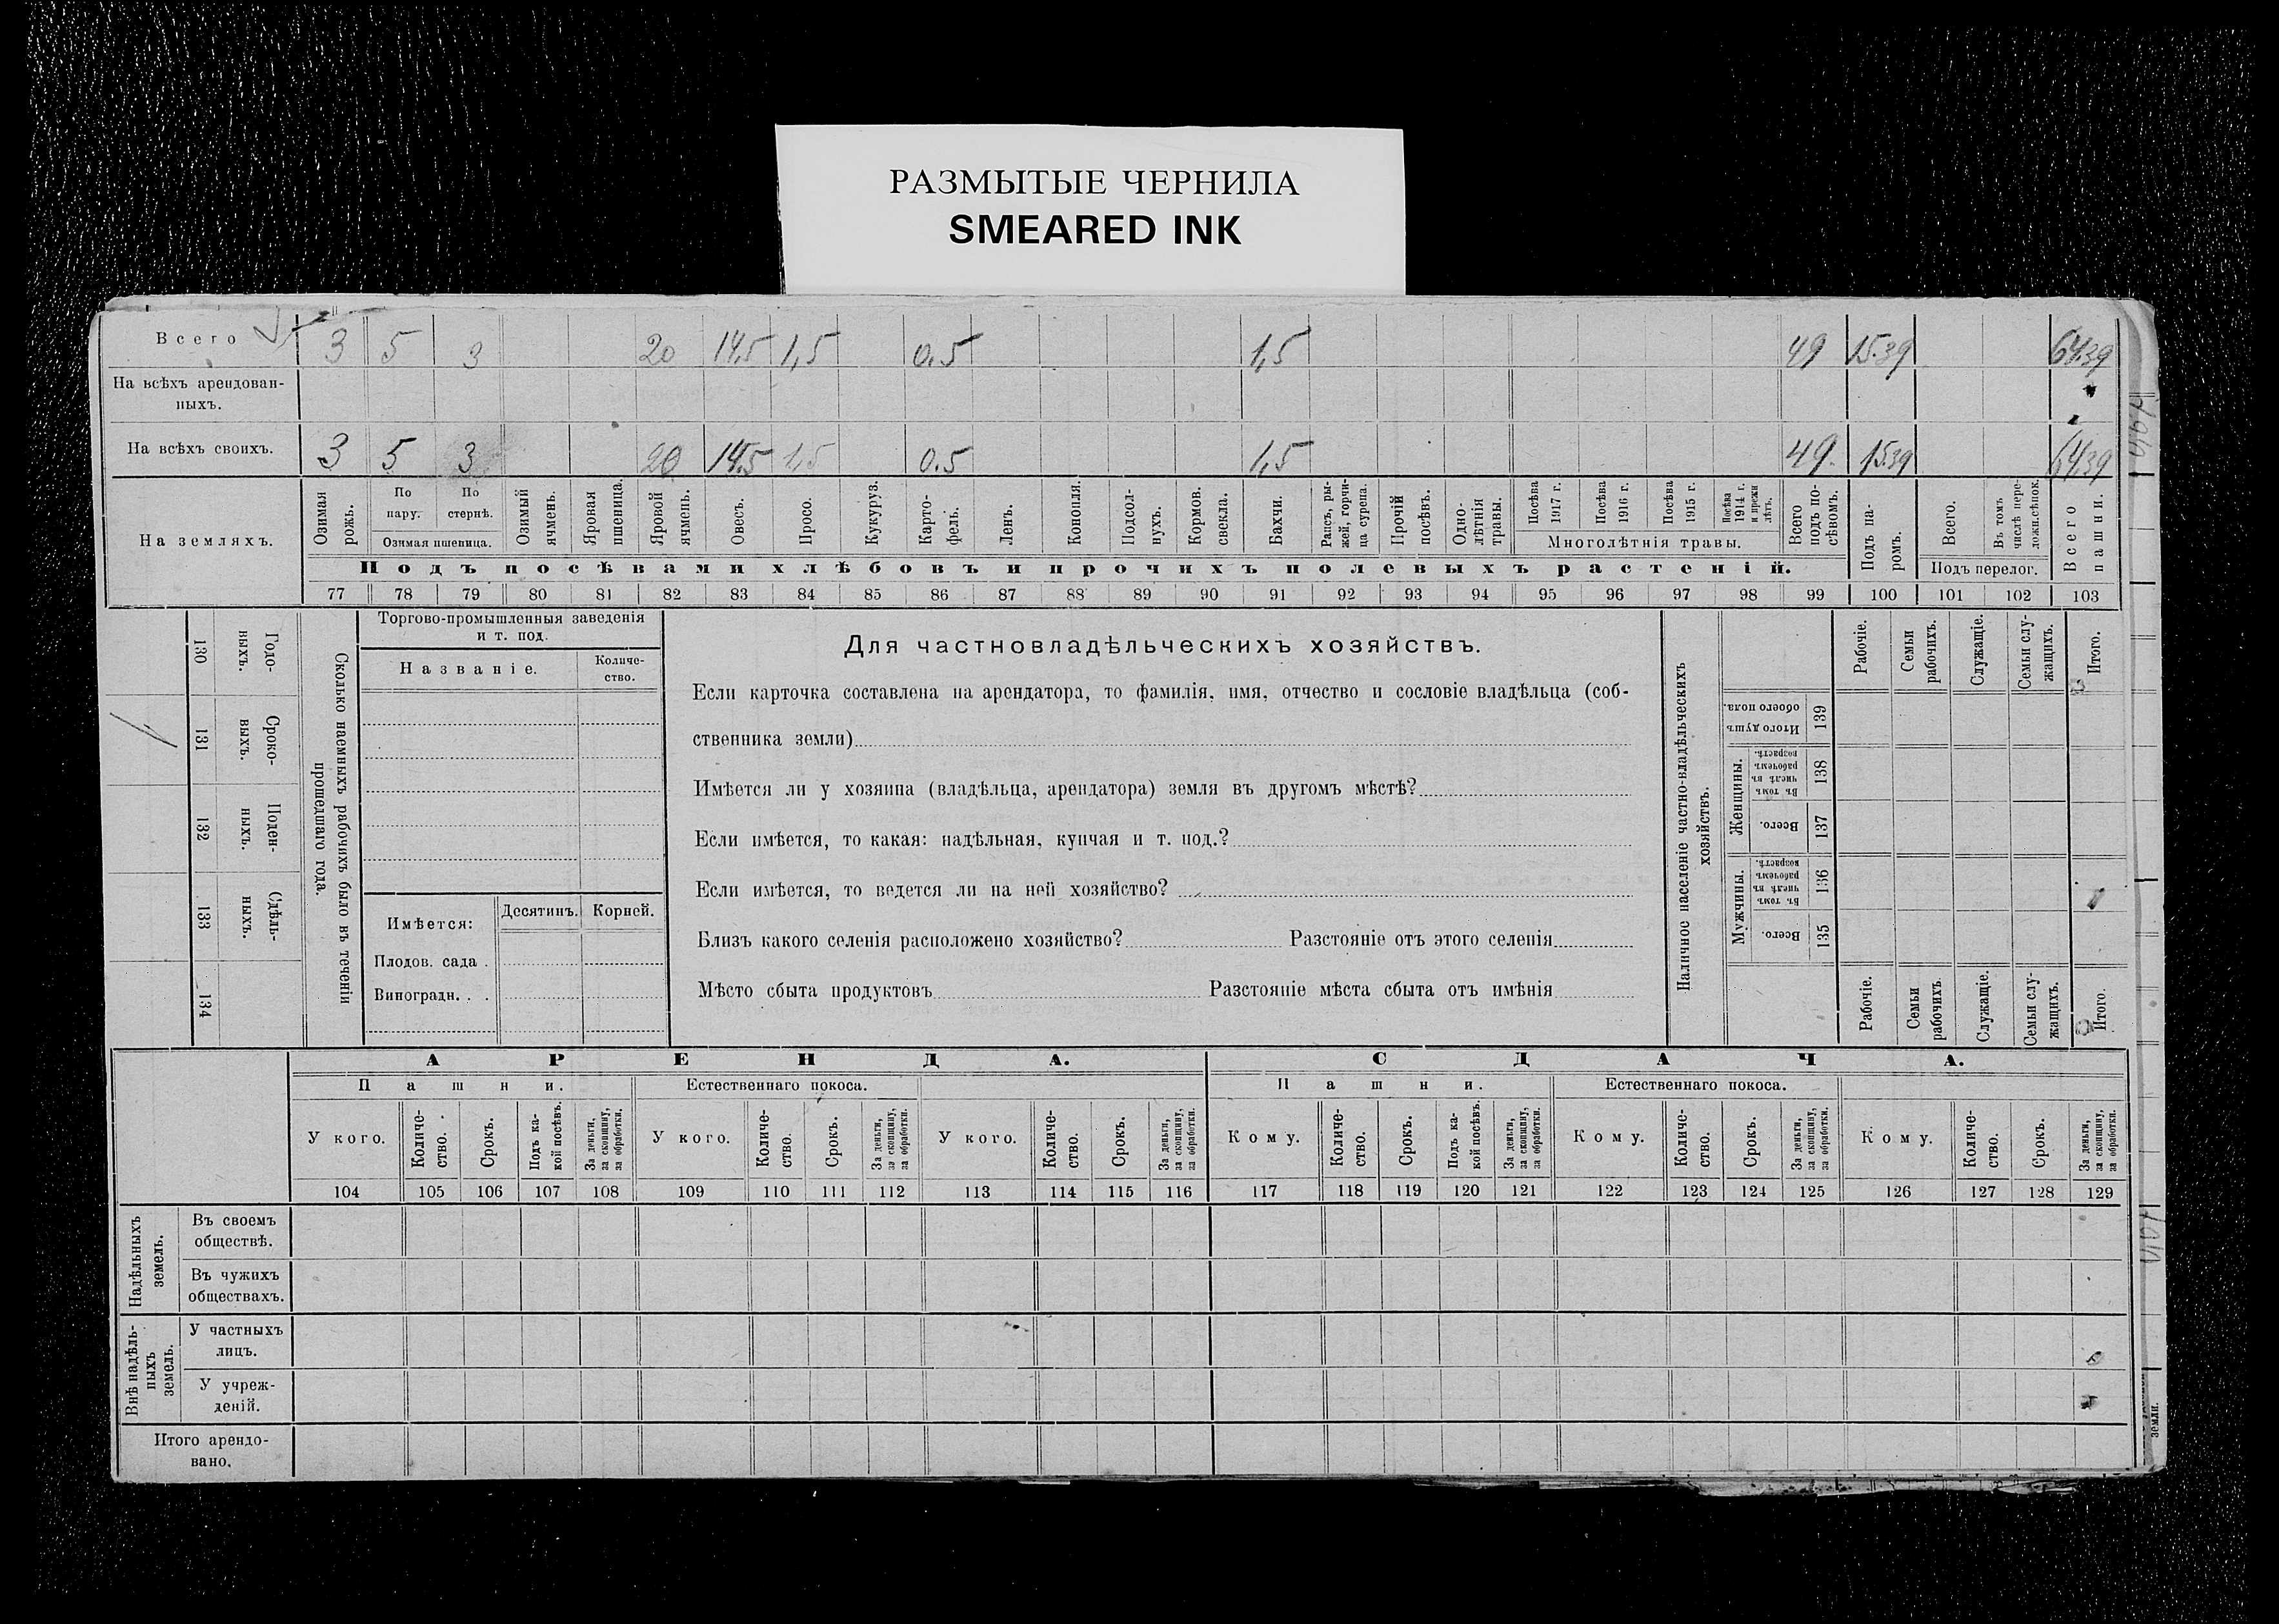 РАЗМЫТЫЕ ЧЕРНИЛА
SMEARED INK
Всего 3 5 3 20 14,5 1,5 0.5 1,5 49 15.39 64.39
На всѣхъ арендован-
ныхъ.
На всѣхъ своихъ. 3 5 3 20 14.5 1,5 0.5 1,5 49. 15.39 64.39
На земляхъ.
Озимая рожь.
По пару.
По стернѣ.
Озимая пшеница.
Озимый ячмень.
Яровая пшеница.
Яровой ячмень.
Овесъ.
Просо.
Кукуруз.
Карто-
фель.
Ленъ.
Конопля.
Подсол-
нухъ.
Кормов.
свекла.
Бахчи.
Рапсъ, ры-
жей, горчи-
ца сурепа.
Прочій
посѣвъ.
Одно-
лѣтнія
травы.
Посѣва
1917 г.
Посѣва
1916 г.
Посѣва
1915 г.
Посѣва
1914 г.
и прежн
лѣтъ.
Многолѣтнія травы.
Всего
подъ по-
сѣвомъ.
Подъ па-
ромъ.
Всего.
Въ томъ
числѣ пере-
ложн.сѣнок.
Подъ перелог.
Всего
пашни.
Подъ посѣвами хлѣбовъ и прочихъ полевыхъ растеній.
77 78 79 80 81 82 83 84 85 86 87 88 89 90 91 92 93 94 95 96 97 98 99 100 101 102 103
130 Годо-
выхъ.
131 Сроко-
выхъ.
132 Поден-
ныхъ.
133 Сдѣль-
ныхъ.
134
Сколько наемныхъ рабочихъ было въ теченіи
прошедшаго года.
Торгово-промышленныя заведенія
и т. под.
Названіе.
Количе-
ство.
Имѣется:
Десятинъ. Корней.
Плодов. сада .
Виноградн. . .
Для частновладѣльческихъ хозяйствъ.
Если карточка составлена на арендатора, то фамилія, имя, отчество и сословіе владѣльца (соб-
ственника земли)
Имѣется ли у хозяина (владѣльца, арендатора) земля въ другомъ мѣстѣ?
Если имѣется, то какая: надѣльная, купчая и т. под.?
Если имѣется, то ведется ли на ней хозяйство?
Близъ какого селенія расположено хозяйство? Разстояніе отъ этого селенія
Мѣсто сбыта продуктовъ Разстояніе мѣста сбыта отъ имѣнія
Наличное населеніе частно-владѣльческихъ
хозяйствъ.
Рабочіе.
Семьи
рабочихъ.
Служащіе.
Семьи слу-
жащихъ.
Итого.
Итого душъ
обоего пола.
139
Женщины.
Въ томъ
числѣ въ
рабочемъ
возрастѣ.
138
Всего.
137
Мужчины.
Въ томъ
числѣ въ
рабочемъ
возрастѣ.
136
Всего.
135
Рабочіе.
Семьи
рабочихъ.
Служащіе.
Семьи слу-
жащихъ.
Итого.
АРЕНДА. СДАЧА.
Пашни. Естественнаго покоса. Пашни. Естественнаго покоса.
У кого.
Количе-
ство.
Срокъ.
Подъ ка-
кой посѣвъ.
За деньги,
за скопщину,
за обработки.
У кого.
Количе-
ство.
Срокъ.
За деньги,
за скопщину,
за обработки.
У кого.
Количе-
ство.
Срокъ.
За деньги,
за скопщину,
за обработки.
Кому.
Количе-
ство.
Срокъ.
Подъ ка-
кой посѣвъ.
За деньги,
за скопщину,
за обработки.
Кому.
Количе-
ство.
Срокъ.
За деньги,
за скопщину,
за обработки.
Кому.
Количе-
ство.
Срокъ.
За деньги,
за скопщину,
за обработки.
104 105 106 107 108 109 110 111 112 113 114 115 116 117 118 119 120 121 122 123 124 125 126 127 128 129
Надѣльныхъ
земель.
Въ своемъ
обществѣ.
Въ чужихъ
обществахъ.
Внѣ надѣль-
ныхъ
земель.
У частныхъ
лицъ.
У учреж-
деній.
Итого арендо-
вано.
земли.